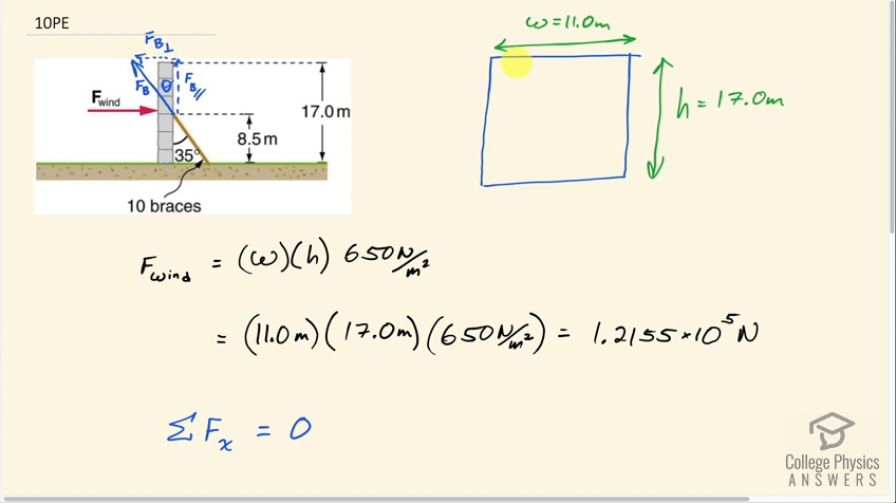 10PE
F_B⊥
F_B
θ
F_B//
F_wind
17.0 m
8.5 m
35°
10 braces
ω = 11.0m
h = 17.0m
F_wind = (ω)(h) 650 N/m²
= (11.0m)(17.0m)(650 N/m²) = 1.2155×10⁵ N
Σ F_x = 0
College Physics
ANSWERS